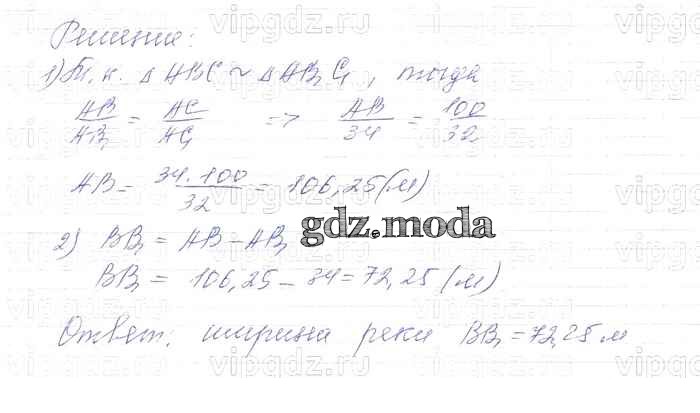 Решение:
1) Т.к. △ABC ~ △AB₁C₁, тогда
AB/AB₁ = AC/AC₁ => AB/34 = 100/32
AB = 34·100/32 = 106,25(м)
gdz.moda
2) BB₁ = AB – AB₁
BB₁ = 106,25 – 34 = 72,25 (м)
Ответ: ширина реки BB₁ = 72,25 м
vipgdz.ru